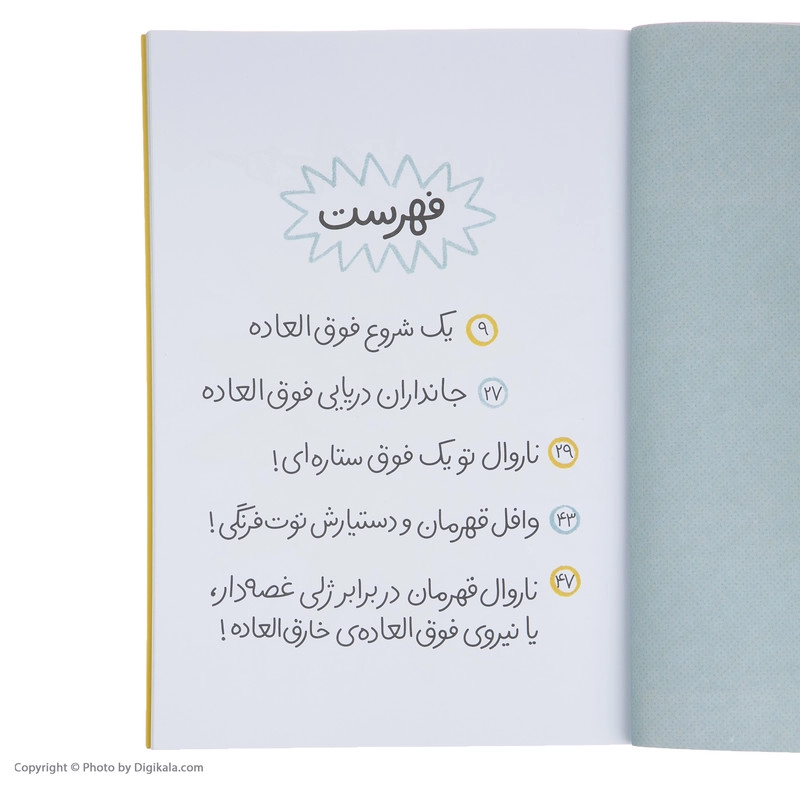 فهرست
۹ یک شروع فوق‌العاده
۲۷ جانداران دریایی فوق‌العاده
۲۹ ناروال تو یک فوق ستاره‌ای!
۴۳ وافل قهرمان و دستیارش توت‌فرنگی!
۴۷ ناروال قهرمان در برابر ژلی غصه‌دار،
یا نیروی فوق‌العاده‌ی خارق‌العاده!
Copyright © Photo by Digikala.com